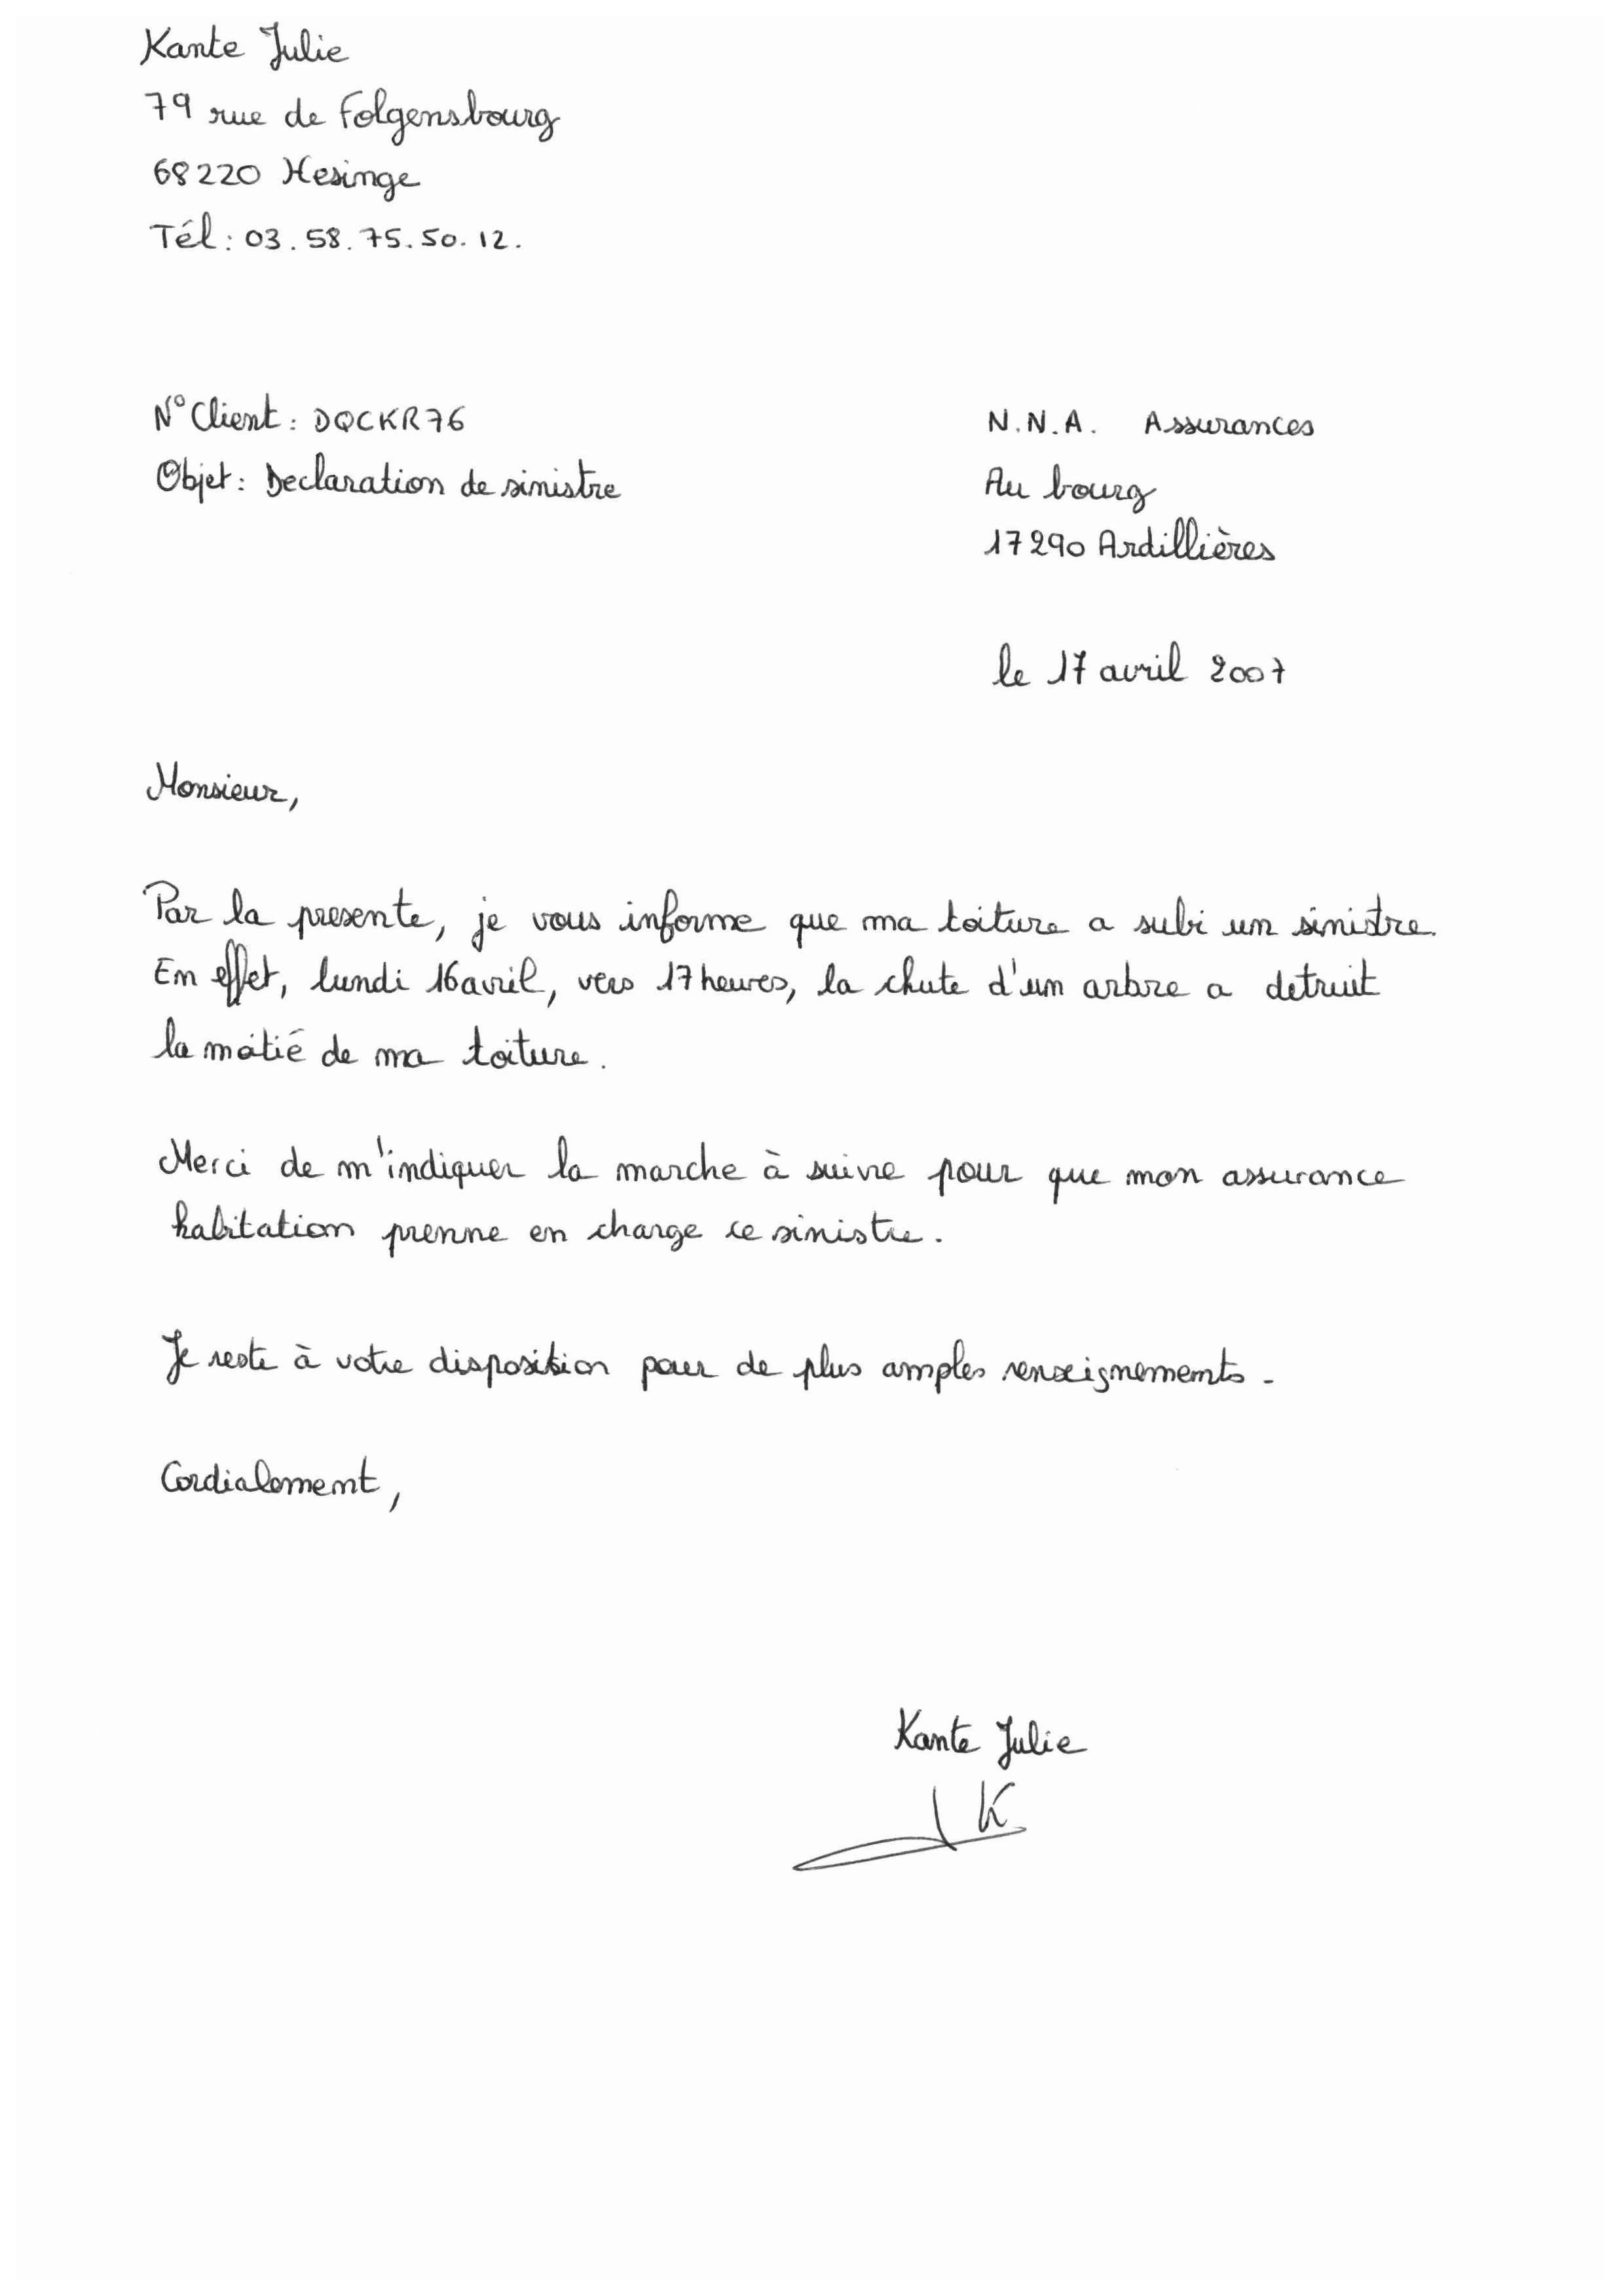 Kante Julie
79 rue de Folgensbourg
68220 Hesinge
Tél : 03.58.75.50.12.
N° Client : DQCKR76
Objet : Declaration de sinistre
N.N.A. Assurances
Au bourg
17290 Ardillières
le 17 avril 2007
Monsieur,
Par la presente, je vous informe que ma toiture a subi un sinistre.
En effet, lundi 16 avril, vers 17 heures, la chute d'un arbre a detruit
la moitié de ma toiture.
Merci de m'indiquer la marche à suivre pour que mon assurance
habitation prenne en charge ce sinistre.
Je reste à votre disposition pour de plus amples renseignements.
Cordialement,
Kante Julie
JK